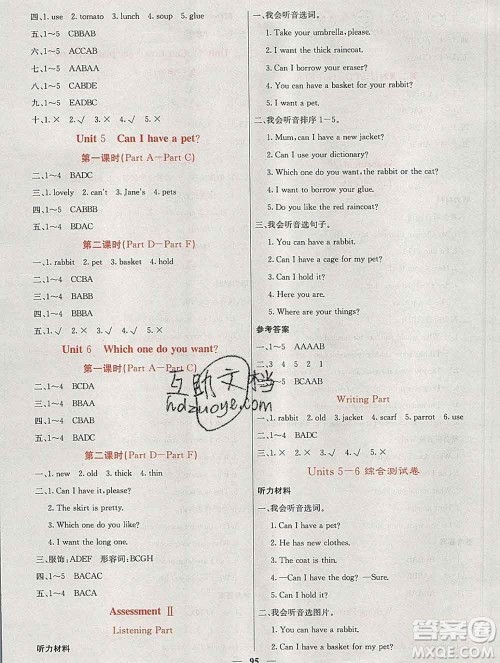 四、1. use 2. tomato 3. lunch 4. soup
五、1~5 CBBAB
六、1~5 ACCAB
七、1~5 AABAA
八、1~5 CABDE
九、1~5 EADBC
十、1. × 2. √ 3. √ 4. √ 5. ×
Unit 5 Can I have a pet?
第一课时(Part A—Part C)
二、1~4 BADC
三、1. lovely 2. can't 3. Jane's 4. pets
四、1~5 CABBB
五、1~4 BDAC
第二课时(Part D—Part F)
一、1. rabbit 2. pet 3. basket 4. hold
二、1~4 CCBA
三、1~4 BABB
四、1~4 BBAB
五、1. × 2. √ 3. √ 4. ×
Unit 6 Which one do you want?
第一课时(Part A—Part C)
一、1~4 BCDA
三、1~4 BBAA
四、1~4 BADC
第二课时(Part D—Part F)
一、1. new 2. old 3. thick 4. thin
二、1. Can I have it,please?
2. The skirt is pretty.
3. Which one do you like?
4. I want the long one.
三、服饰:ADEF 形容词:BCGH
四、1~5 BACAC
五、1. √ 2. × 3. √ 4. ×
Assessment Ⅱ
Listening Part
听力材料
一、我会听音选词。
1. Take your umbrella, please!
2. I want the thick raincoat.
3. Can I borrow your eraser?
4. Can you have a basket for your rabbit?
5. I want a pet.
二、我会听音排序 1—5。
1. Mum,can I have a new jacket?
2. Can I use your dictionary?
3. Which one do you want,the rabbit or the cat?
4. What do you like?
5. Do you like the raincoat?
三、我会听音选句子。
1. You can have a rabbit.
2. Can I have a cage for my pet?
3. Can I hold it?
4. Here you are.
5. Where are your things?
参考答案
一、1~5 AAAAB
二、3 4 5 2 1
三、1~5 BCAAB
Writing Part
一、1. rabbit 2. old 3. jacket 4. scarf 5. parrot 6. use
二、1~4 BADC
Units 5—6 综合测试卷
听力材料
一、我会听音选词。
1. Can I have a pet?
2. He has new clothes.
3. The coat is thin.
4. —Can I have the dog? —Yes, you can.
5. Can I use it?
二、我会听音选图片。
1. Can I have a rabbit?
2. Can I have a basket for my pet?
95
互助文档
hdzuoye.com
答案圈
MXQE.COM